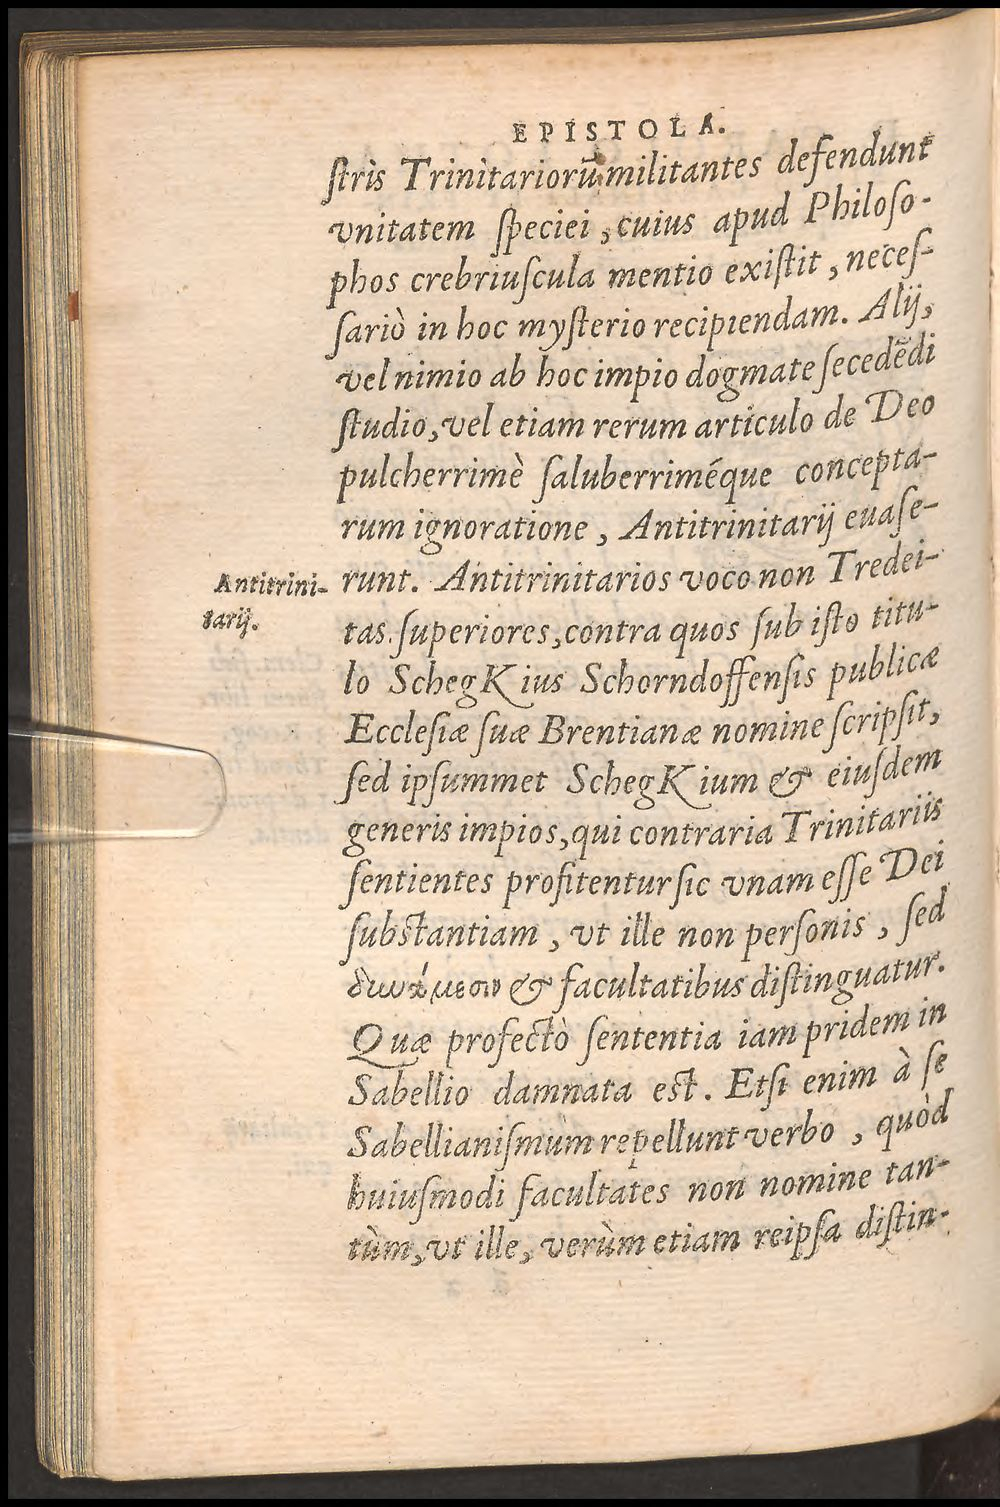 EPISTOLA.
ſtris Trinitariorū militantes defendunt
vnitatem ſpeciei, cuius apud Philoſo-
phos crebriuſcula mentio exiſtit, neceſ-
ſariò in hoc myſterio recipiendam. Alij,
vel nimio ab hoc impio dogmate ſecedēdi
ſtudio, vel etiam rerum articulo de Deo
pulcherrimè ſaluberriméque concepta-
rum ignoratione, Antitrinitarij euaſe-
runt. Antitrinitarios voco non Tredei-
tas ſuperiores, contra quos ſub iſto titu-
lo SchegKius Schorndoffenſis publicæ
Eccleſiæ ſuæ Brentianæ nomine ſcripſit,
ſed ipſummet SchegKium & eiuſdem
generis impios, qui contraria Trinitariis
ſentientes profitentur ſic vnam eſſe Dei
ſubſtantiam, vt ille non perſonis, ſed
δυνάμεσιν & facultatibus diſtinguatur.
Quæ profectò ſententia iam pridem in
Sabellio damnata eſt. Etſi enim à ſe
Sabellianiſmum repellunt verbo, quòd
huiuſmodi facultates non nomine tan-
tùm, vt ille, verùm etiam reipſa diſtin-
Antitrini-
tarij.